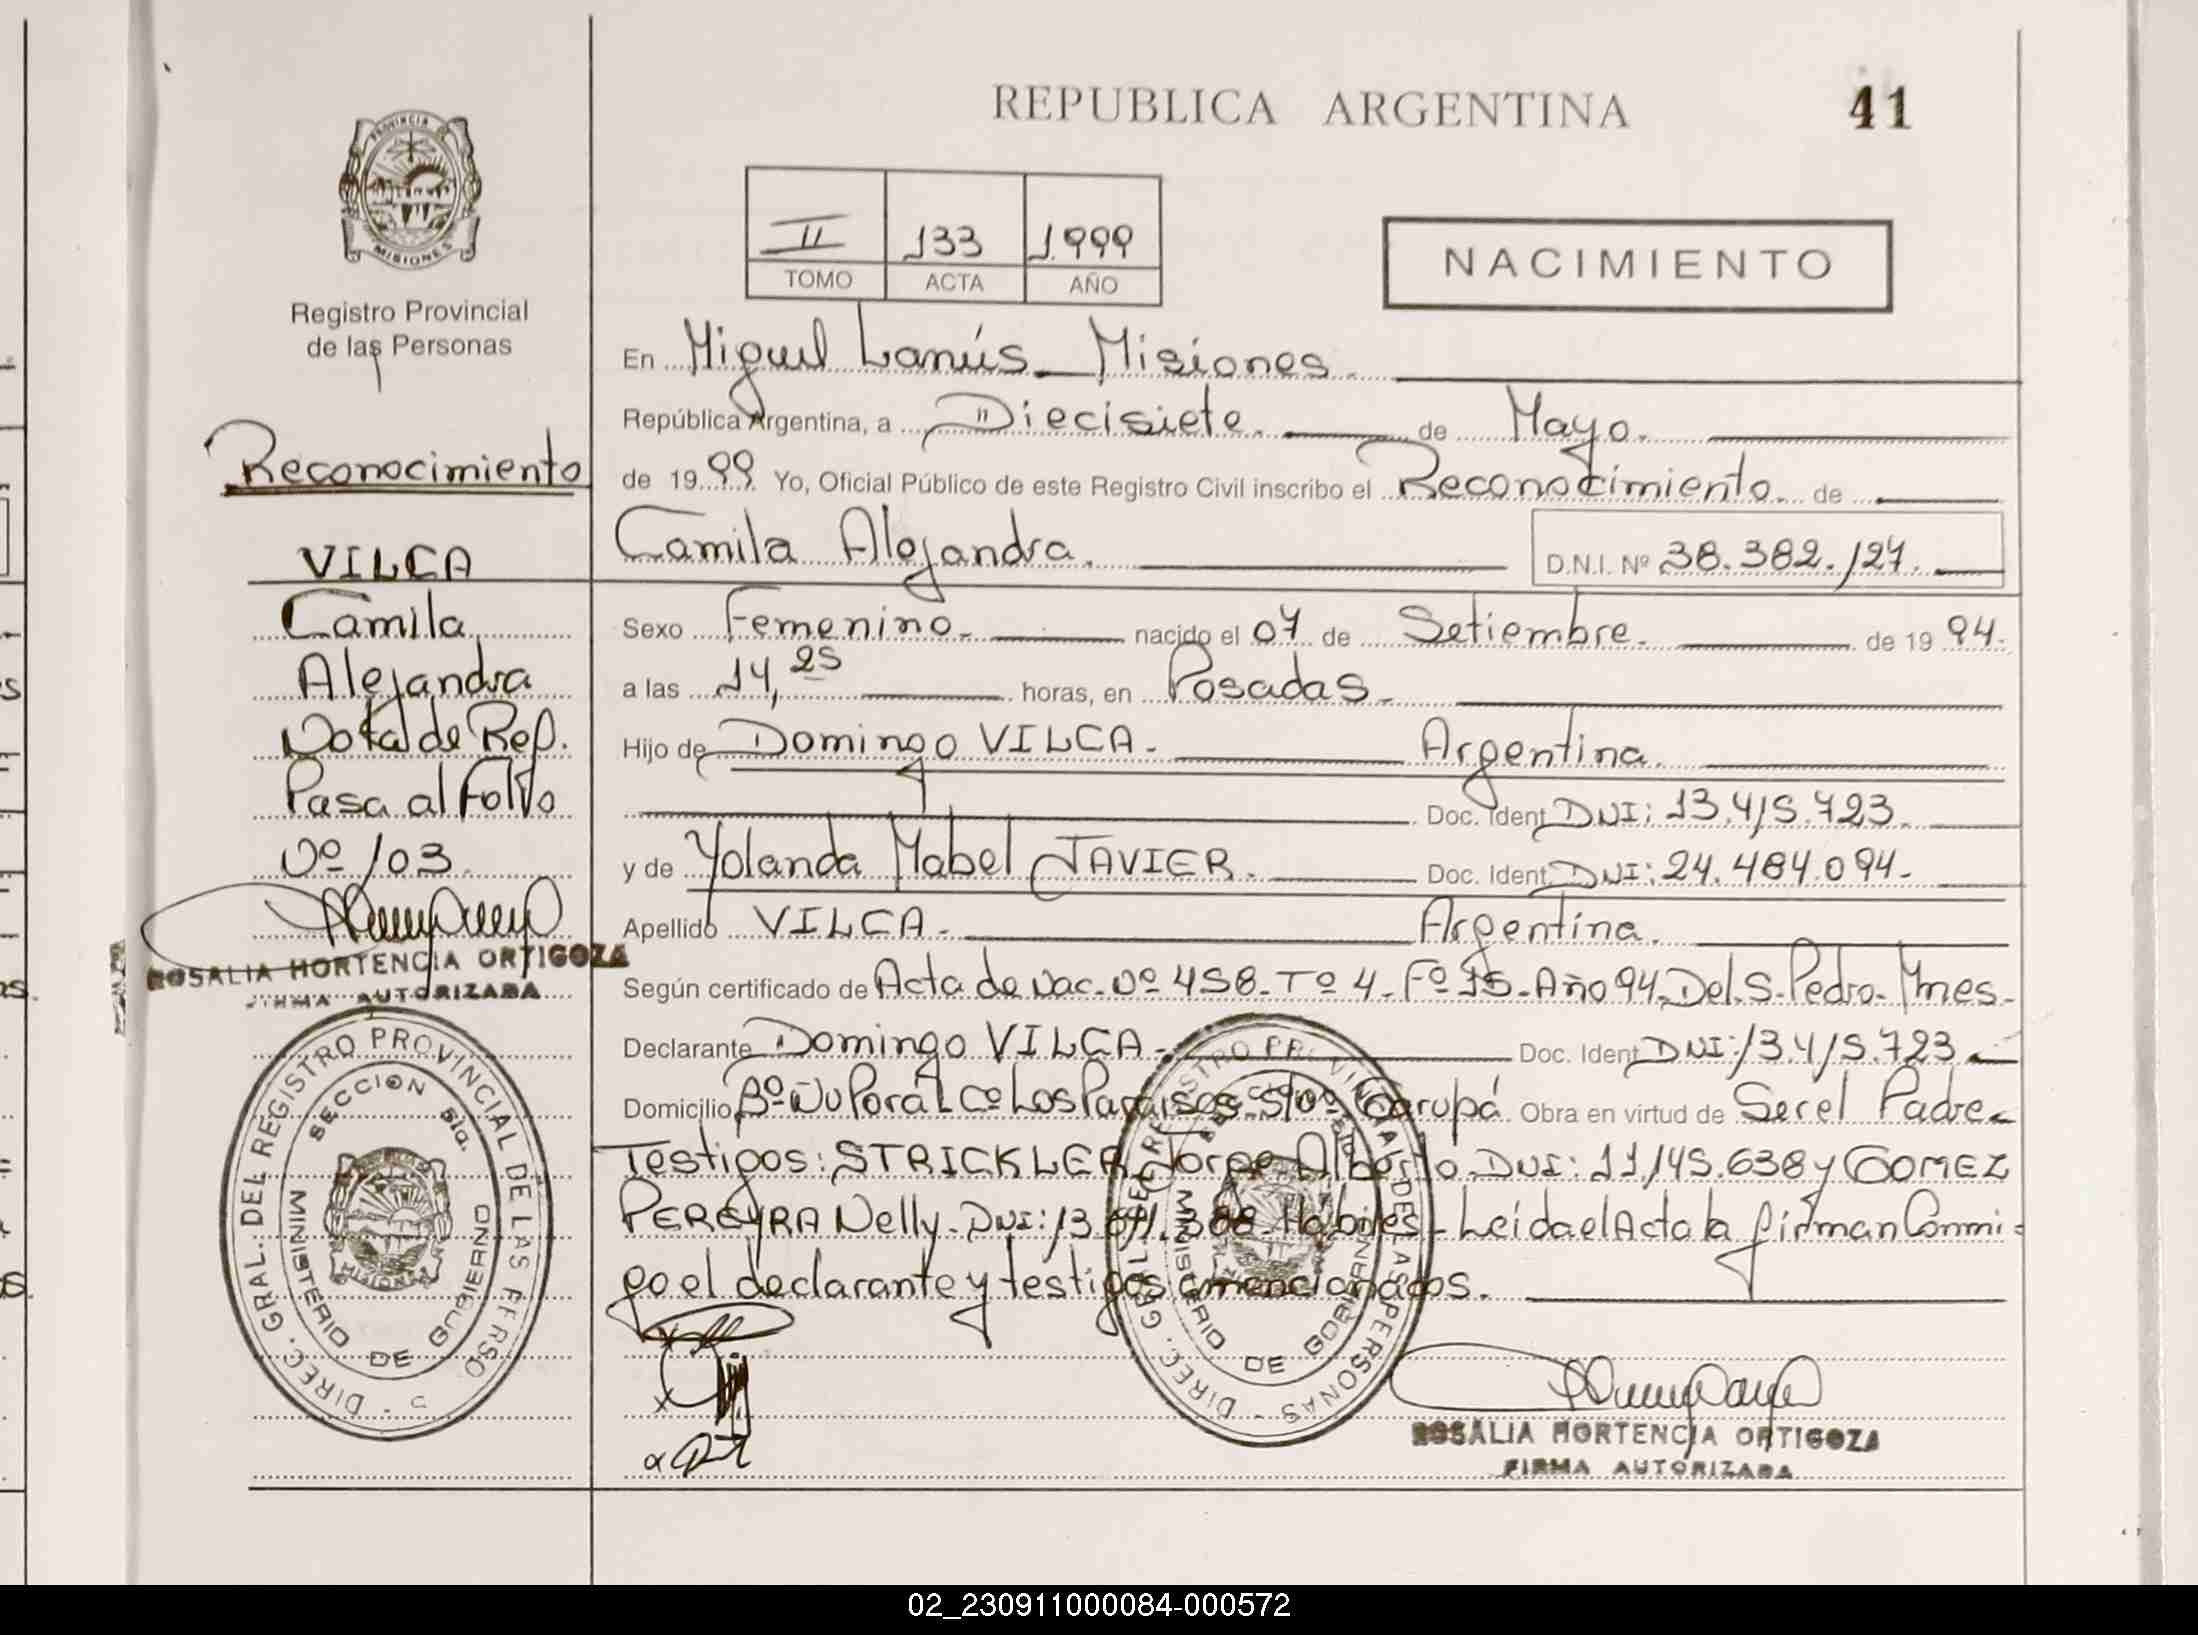 REPUBLICA ARGENTINA
41
PROVINCIA DE
MISIONES
Registro Provincial
de las Personas
II 133 1.999
TOMO ACTA AÑO
NACIMIENTO
En Miguel Lanús - Misiones.
República Argentina, a Diecisiete. de Mayo.
de 1999. Yo, Oficial Público de este Registro Civil inscribo el Reconocimiento. de
Camila Alejandra. D.N.I. Nº 38.382.127.
Sexo Femenino. nacido el 07 de Setiembre. de 1994.
a las 14,25 horas, en Posadas.
Hijo de Domingo VILCA. Argentina.
Doc. Ident DNI: 13.415.723.
y de Yolanda Mabel JAVIER. Doc. Ident DNI: 24.484.094.
Apellido VILCA. Argentina.
Según certificado de Acta de Nac. Nº 458. Tº 4. Fº 15. Año 94. Del. S. Pedro. Mnes.
Declarante Domingo VILCA. Doc. Ident DNI: 13.415.723
Domicilio Bº Ñu Porá Cº Los Paraisos Garupá Obra en virtud de Ser el Padre
Testigos: STRICKLER Jorge Alberto. DNI: 11.145.638 y GOMEZ
PEREYRA Nelly. DNI: Habiles. Leida el Acta la firman Conmi-
go el declarante y testigos mencionados.
ROSALIA HORTENCIA ORTIGOZA
FIRMA AUTORIZADA
Reconocimiento
VILCA
Camila
Alejandra
Nota de Ref.
Pasa al Folio
Nº 103.
ROSALIA HORTENCIA ORTIGOZA
FIRMA AUTORIZADA
DIREC. GRAL. DEL REGISTRO PROVINCIAL DE LAS PERSO
SECCION 5ta.
MINISTERIO DE GOBIERNO
MISIONES
DIREC. GRAL. DEL REGISTRO PROVINCIAL DE LAS PERSONAS
MINISTERIO DE GOBIERNO
02_230911000084-000572